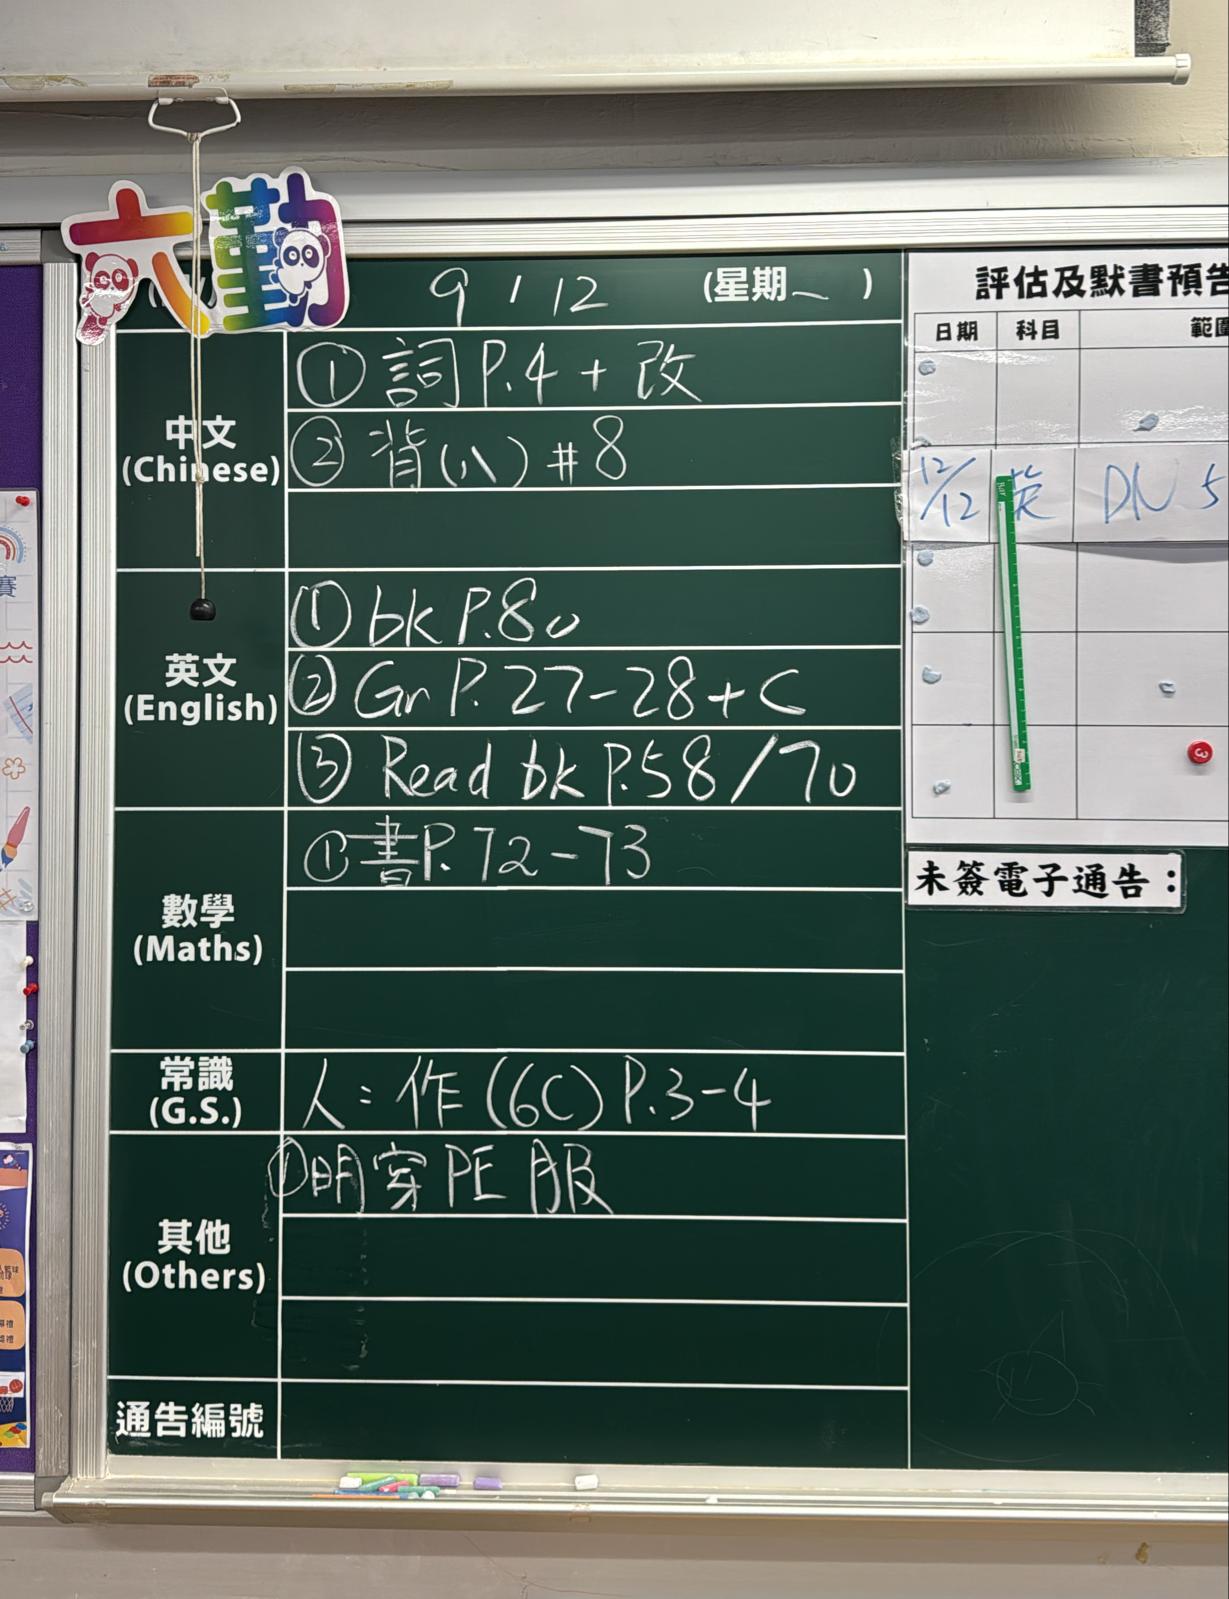 六勤
9 / 12 (星期二)
中文
(Chinese)
① 詞 P.4 + 改
② 背(八) #8
英文
(English)
① bk P.80
② Gr P. 27-28 + C
③ Read bk P.58/70
數學
(Maths)
① 書 P.72-73
常識
(G.S.)
人：作 (6C) P.3-4
其他
(Others)
① 明穿 PE 服
通告編號
評估及默書預告
日期 科目 範圍
12/12 英 DN 5
未簽電子通告：
3
賽